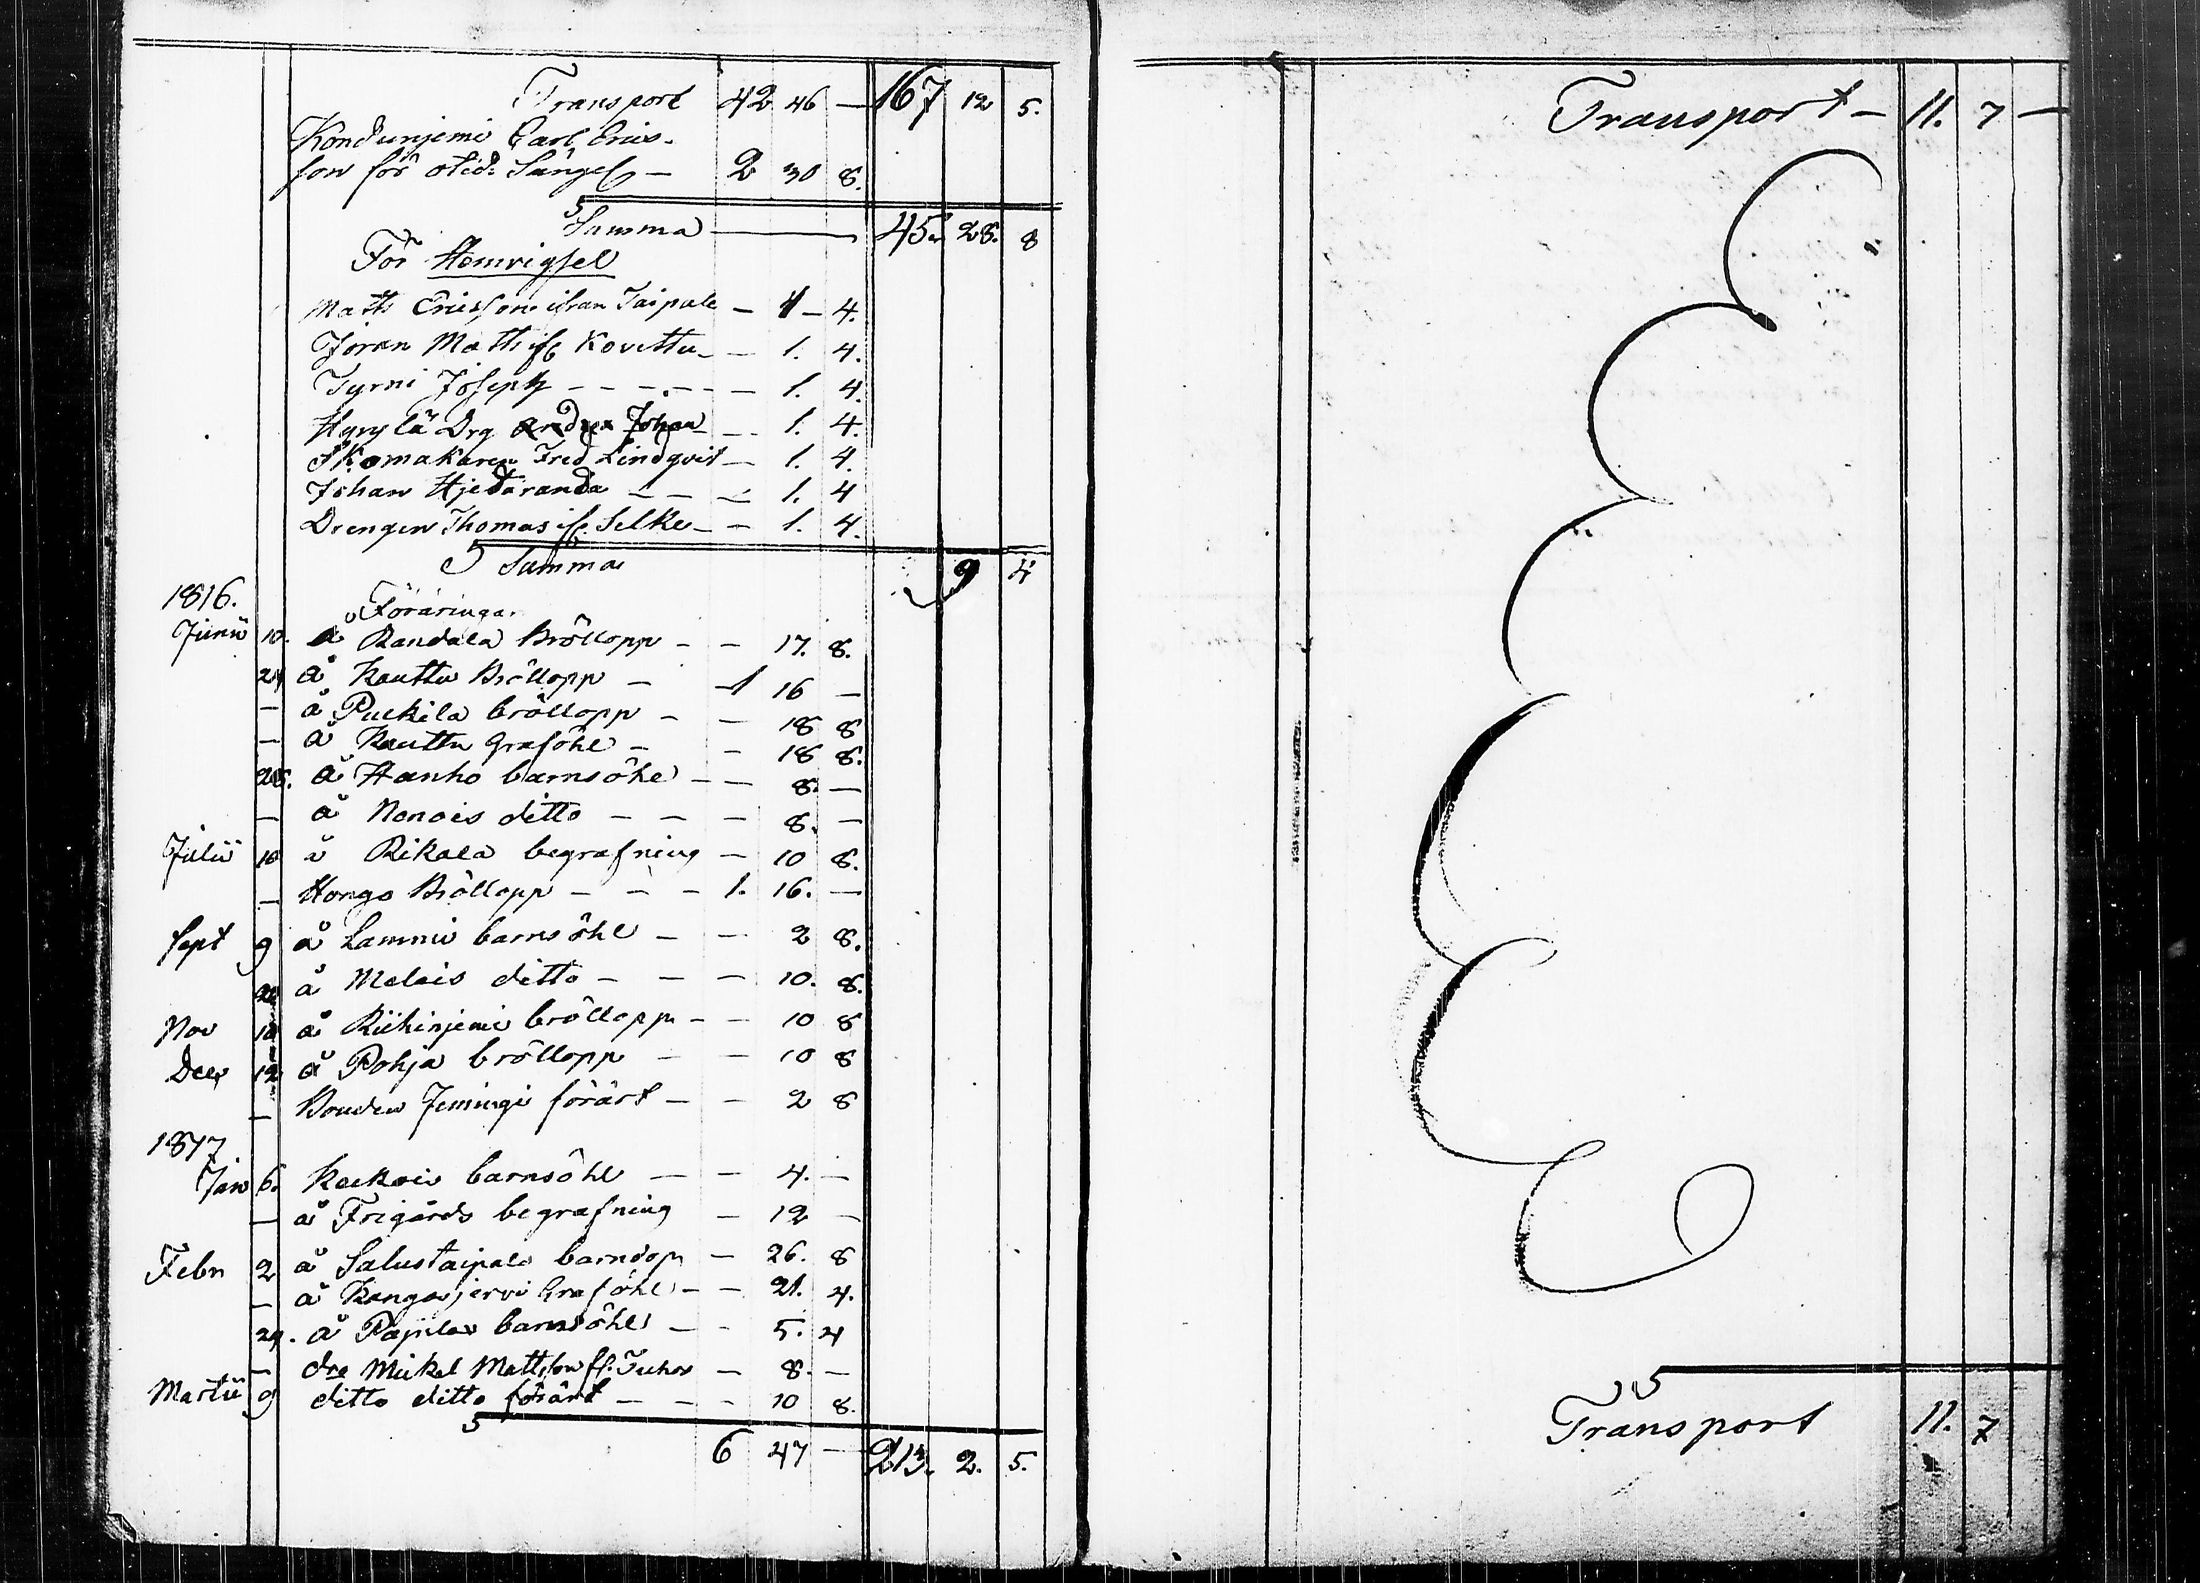 Transport 42 46 — 167 12 5.
Kondunjemi Carl Erics-
son för otid: Sängel — 2 30 8.
Summa — 45. 28. 8
För Hemvigsel
Matts Ericsson ifrån Taipale — 1 — 4.
Jöran Matts if Kovittu — — 1. 4.
Tyrni Joseph — — — — — 1. 4.
Hyrylä Drg Johan — — 1. 4.
Skomakaren Fred Lindqvist — 1. 4.
Johan Hjedaranda — — — 1. 4
Drengen Thomas if. Selke — — 1. 4.
Summa 9 4
1816.
Föräringar
Junii 10. å Randala Bröllopp — — 17. 8.
24 å Kauttu Bröllopp — 1 16 —
— å Puckila bröllopp — — 18 8
— å Kauttu Graföhl — — 18 8.
25. å Hanho barnsöhl — — 8. —
— å Nonois ditto — — — 8. —
Julii 10 å Rikala begrafning — 10 8.
— Hongo Bröllopp — — — 1. 16. —
Sept 9 å Lammi barnsöhl — — 2 8.
å Melois ditto — — — 10. 8.
Nov 10 å Riihinjemi bröllopp — — 10 8
Decr 12 å å Pohja bröllopp — — 10 8
— Bonden Jemingi förärt — — 2 8
1817
Jan 6. Keckois barnsöhl — — 4. —
— å Frigårds begrafning — 12 —
Febr 2 å Salustaipale barndop — 26. 8
— å Kangasjervi Graföhl — — 21. 4.
24. å Papila barnsöhl — — 5. 4
— dra Mickel Mattsson fr. Juhos — 8. —
Martii 9 ditto ditto förärt — — — 10 8.
6 47 — 213. 2. 5.
Transport — 11. 7 —
Transport 11. 7